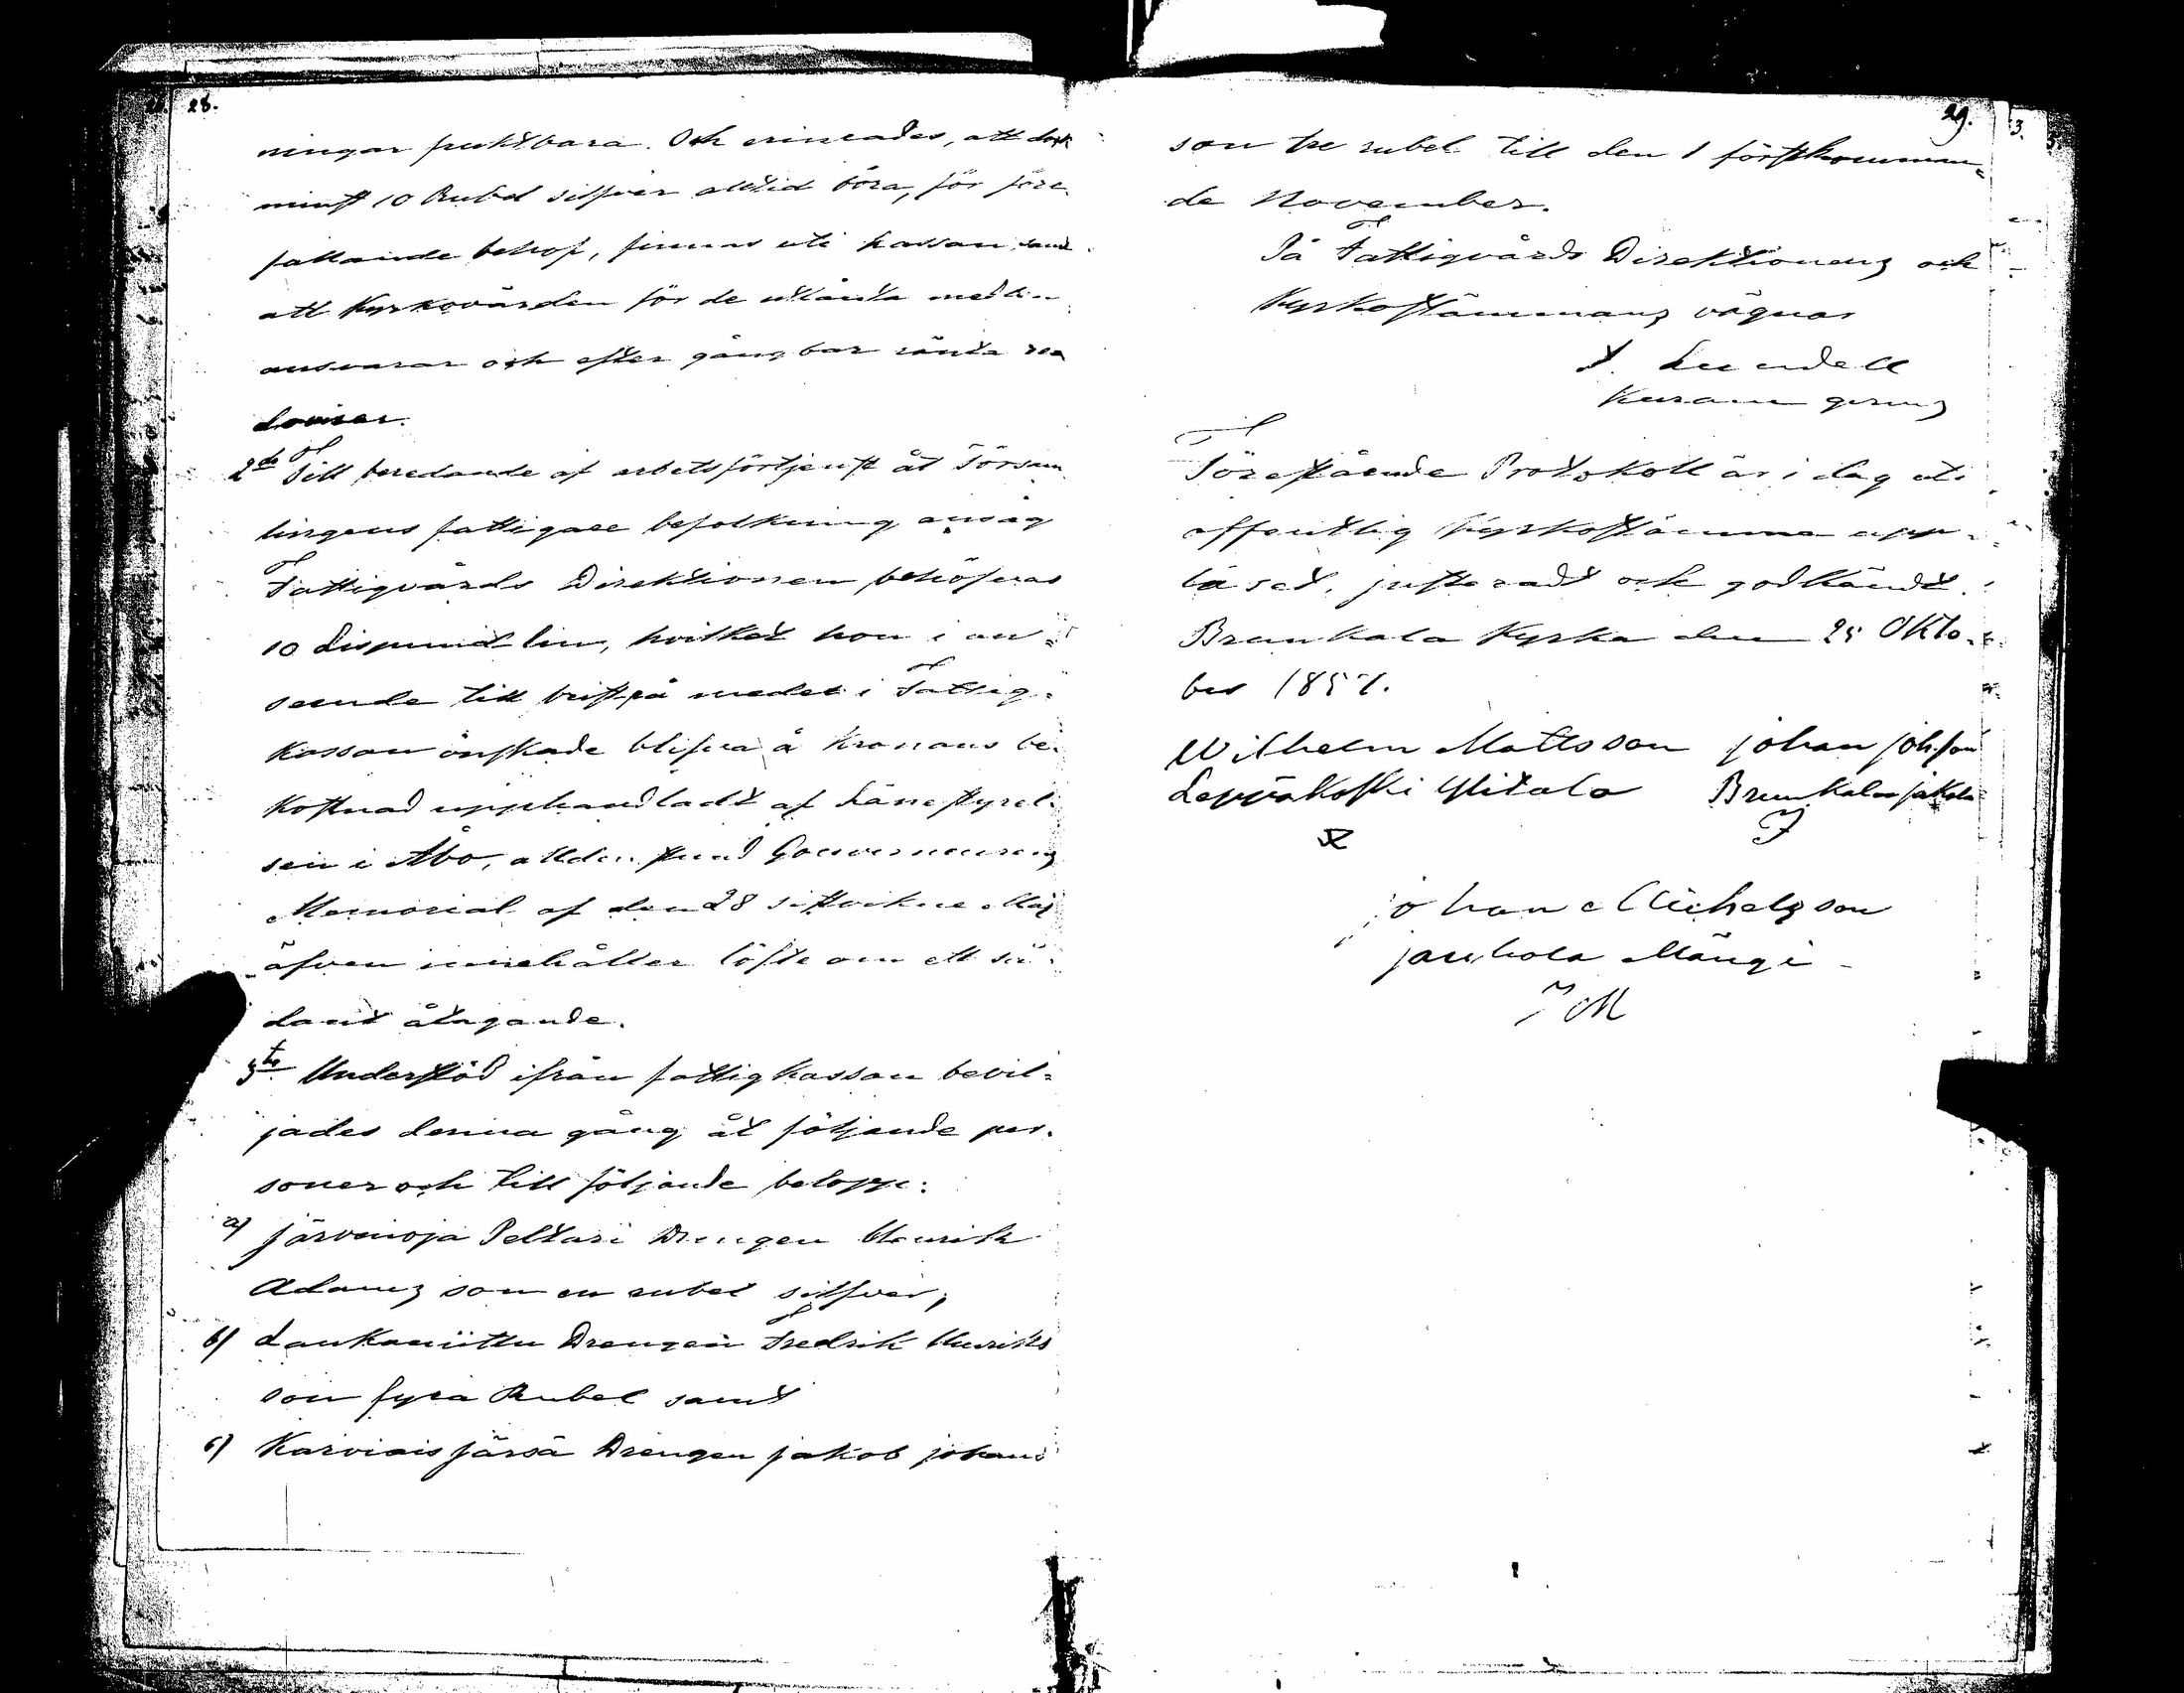 28.
ningar fruktbara. Och erinrades, att dock
minst 10 Rubel silfver alltid böra, för före
fallande behof, finnas uti kassan samt
att Kyrkovärden för de utlånta medlen
ansvarar och efter gångbar ränta re
doviser.
2do Till beredande af arbetsförtjenst åt Försam
lingens fattigare befolkning ansåg
Fattigvårds Direktionen behöfvas
10 Lispund lin, hvilket hon i an=
seende till brist på medel i Fattig=
Kassan önskade blifva å Kronans be=
kostnad upphandladt af Länestyrel=
sen i Åbo, alldenstund Gouverneurens
Memorial af den 28 sistvikne Maj
äfven innehåller löfte om ett så=
dant åtagande.
3tio Understöd ifrån fattigkassan bevil=
jades denna gång åt följande per=
soner och till följande belopp:
a) Järvenoja Peltari Drengen Henrik
Adams son en rubel silfver,
b) Laukaniittu Drengen Fredrik Henriks
son fyra Rubel samt
c) Karviais Järsä Drengen Jakob Johans
29.
son tre rubel till den 1 förstkomman=
de November.
På Fattigvårds Direktionens och
Kyrkostämmans vägnar
Lundell
Förestående Protokoll är i dag uti
offentlig Kyrkostämma upp=
läset, justeradt och godkändt.
Brunkala Kyrka den 25 Okto=
ber 1857.
Wilhelm Mattsson Johan Johsson
Leppäkoski Ylitalo Brunkala Jakola
Johan Michelsson
Jauhola Mängi
J M